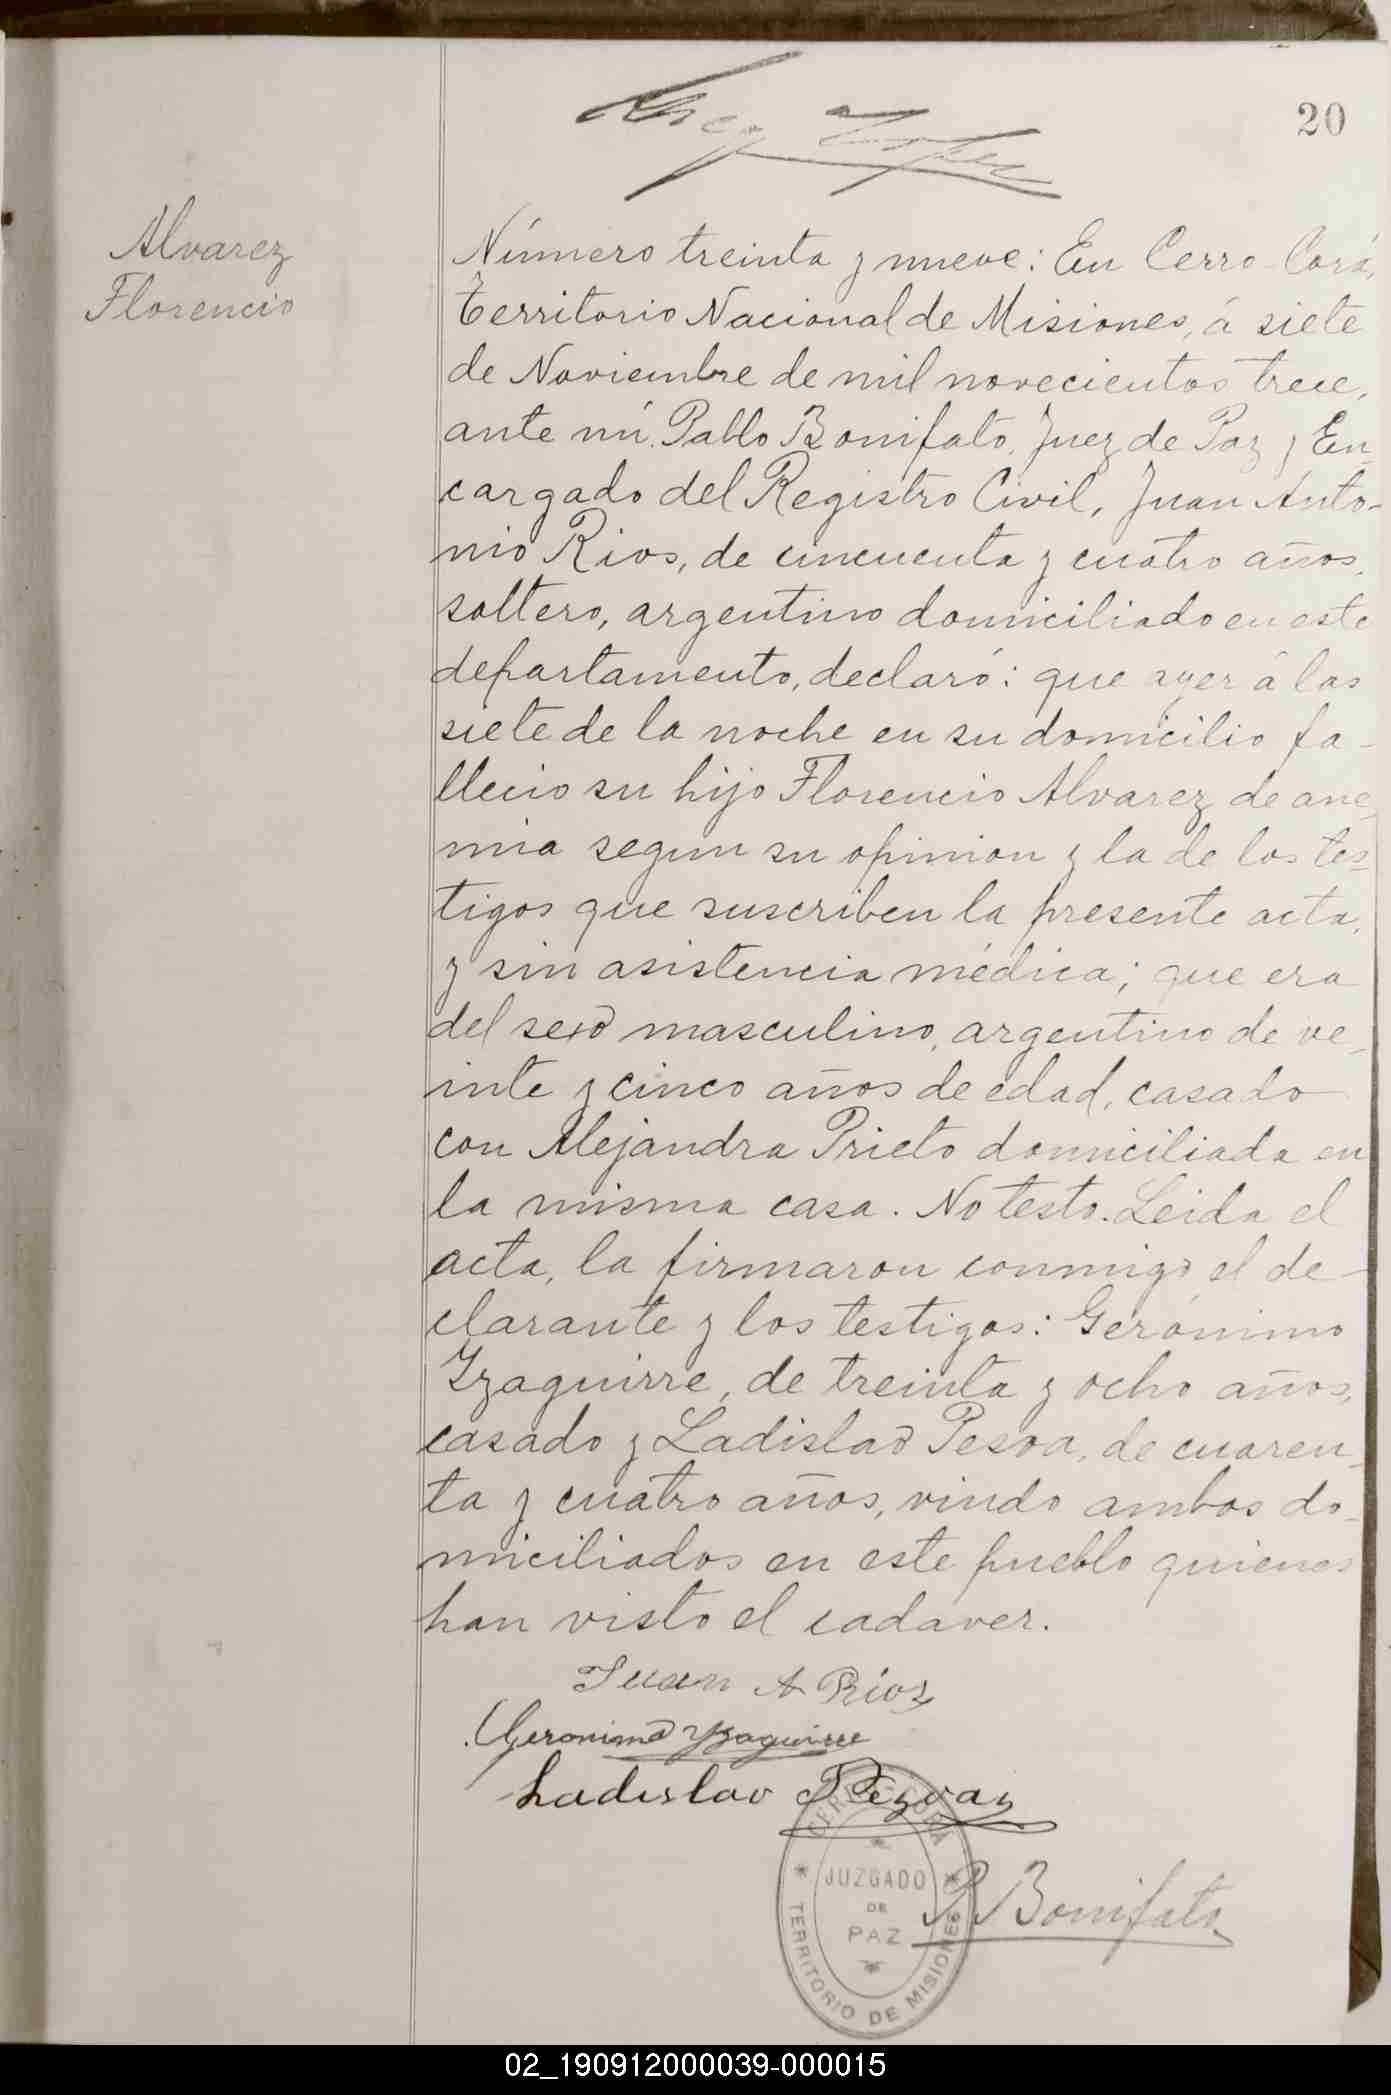 20
Alvarez
Florencio
Número treinta y nueve: En Cerro-Corá,
Territorio Nacional de Misiones, á siete
de Noviembre de mil novecientos trece,
ante mí Pablo Bonifato, Juez de Paz y En-
cargado del Registro Civil, Juan Anto-
nio Rios, de cincuenta y cuatro años,
soltero, argentino domiciliado en este
departamento, declaró: que ayer á las
siete de la noche en su domicilio fa-
llecio su hijo Florencio Alvarez de ane-
mia segun su opinion y la de los tes-
tigos que suscriben la presente acta,
y sin asistencia médica; que era
del sexo masculino, argentino de ve-
inte y cinco años de edad, casado
con Alejandra Prieto domiciliada en
la misma casa. No testo. Leida el
acta, la firmaron conmigo el de-
clarante y los testigos: Gerónimo
Yzaguirre, de treinta y ocho años,
casado y Ladislao Pesoa, de cuaren-
ta y cuatro años, viudo ambos do-
miciliados en este pueblo quienes
han visto el cadaver.
Juan A Ríos
Geronimo Yzaguirre
Ladislao Pezoa
CERRO-CORÁ
JUZGADO
DE
PAZ
TERRITORIO DE MISIONES
P. Bonifato
02_190912000039-000015